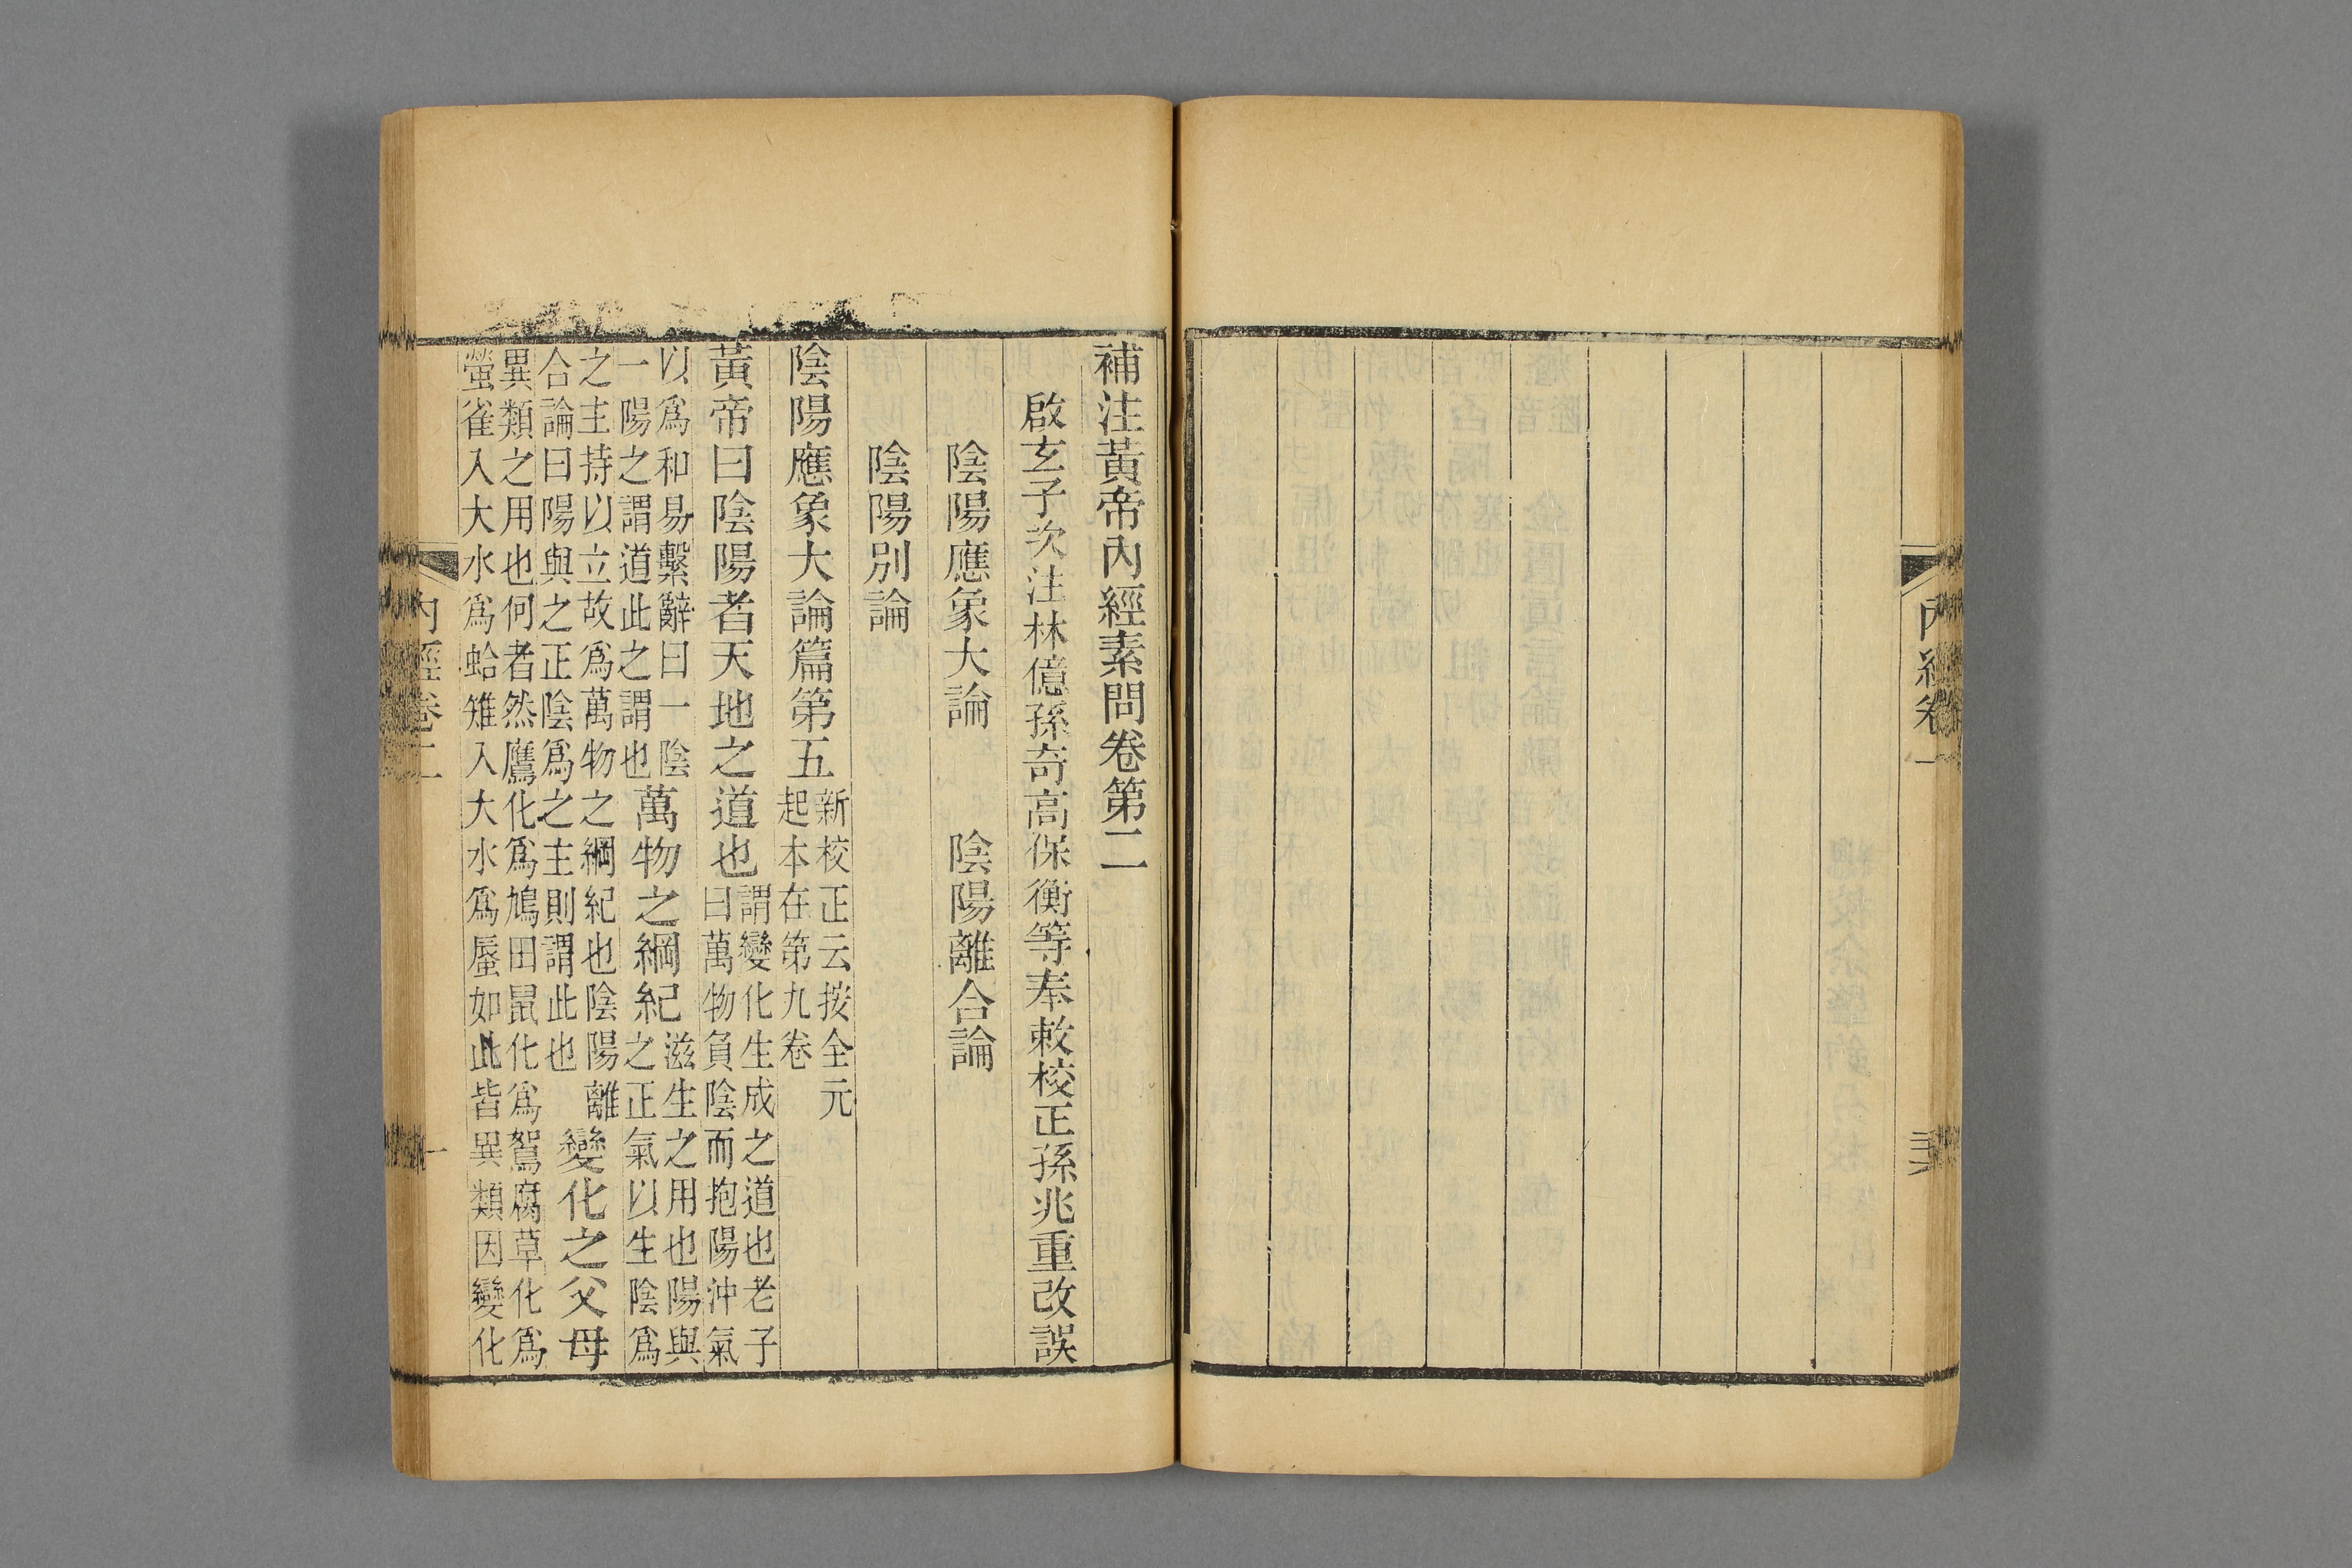 補注黃帝內經素問卷第二
啟玄子次注林億孫奇高保衡等奉敕校正孫兆重改誤
陰陽應象大論 陰陽離合論
陰陽別論
陰陽應象大論篇第五 新校正云按全元
起本在第九卷
黃帝曰陰陽者天地之道也 謂變化生成之道也老子
曰萬物負陰而抱陽沖氣
以爲和易繫辭曰一陰
一陽之謂道此之謂也 萬物之綱紀 滋生之用也陽與
之正氣以生陰爲
之主持以立故爲萬物之綱紀也陰陽離
合論曰陽與之正陰爲之主則謂此也 變化之父母
異類之用也何者然鷹化爲鳩田鼠化爲鴽腐草化爲
螢雀入大水爲蛤雉入大水爲蜃如此皆異類因變化
內經卷二
一
內經卷一